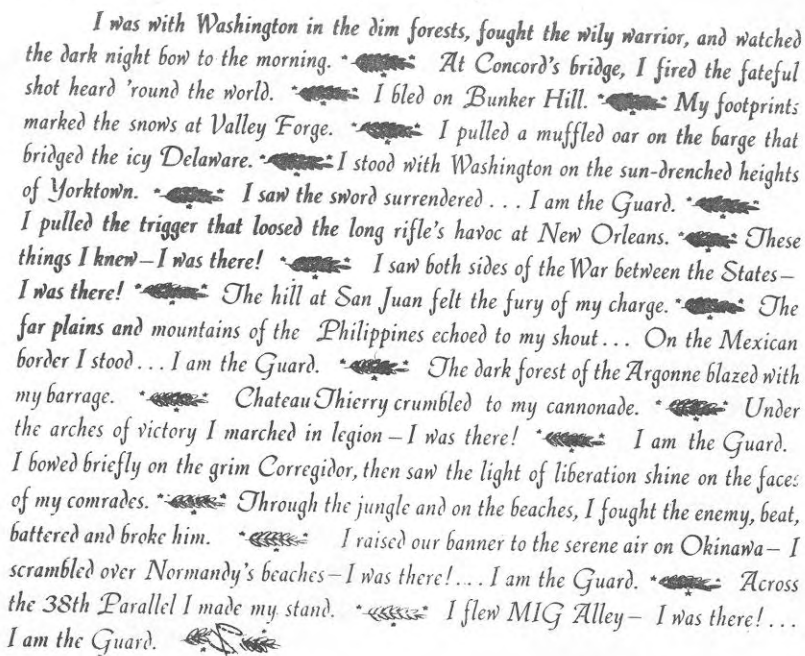 I was with Washington in the dim forests, fought the wily warrior, and watched
the dark night bow to the morning. At Concord's bridge, I fired the fateful
shot heard 'round the world. I bled on Bunker Hill. My footprints
marked the snows at Valley Forge. I pulled a muffled oar on the barge that
bridged the icy Delaware. I stood with Washington on the sun-drenched heights
of Yorktown. I saw the sword surrendered . . . I am the Guard.
I pulled the trigger that loosed the long rifle's havoc at New Orleans. These
things I knew—I was there! I saw both sides of the War between the States—
I was there! The hill at San Juan felt the fury of my charge. The
far plains and mountains of the Philippines echoed to my shout . . . On the Mexican
border I stood . . . I am the Guard. The dark forest of the Argonne blazed with
my barrage. Chateau Thierry crumbled to my cannonade. Under
the arches of victory I marched in legion—I was there! I am the Guard.
I bowed briefly on the grim Corregidor, then saw the light of liberation shine on the faces
of my comrades. Through the jungle and on the beaches, I fought the enemy, beat,
battered and broke him. I raised our banner to the serene air on Okinawa—I
scrambled over Normandy's beaches—I was there! . . . I am the Guard. Across
the 38th Parallel I made my stand. I flew MIG Alley—I was there! . . .
I am the Guard.